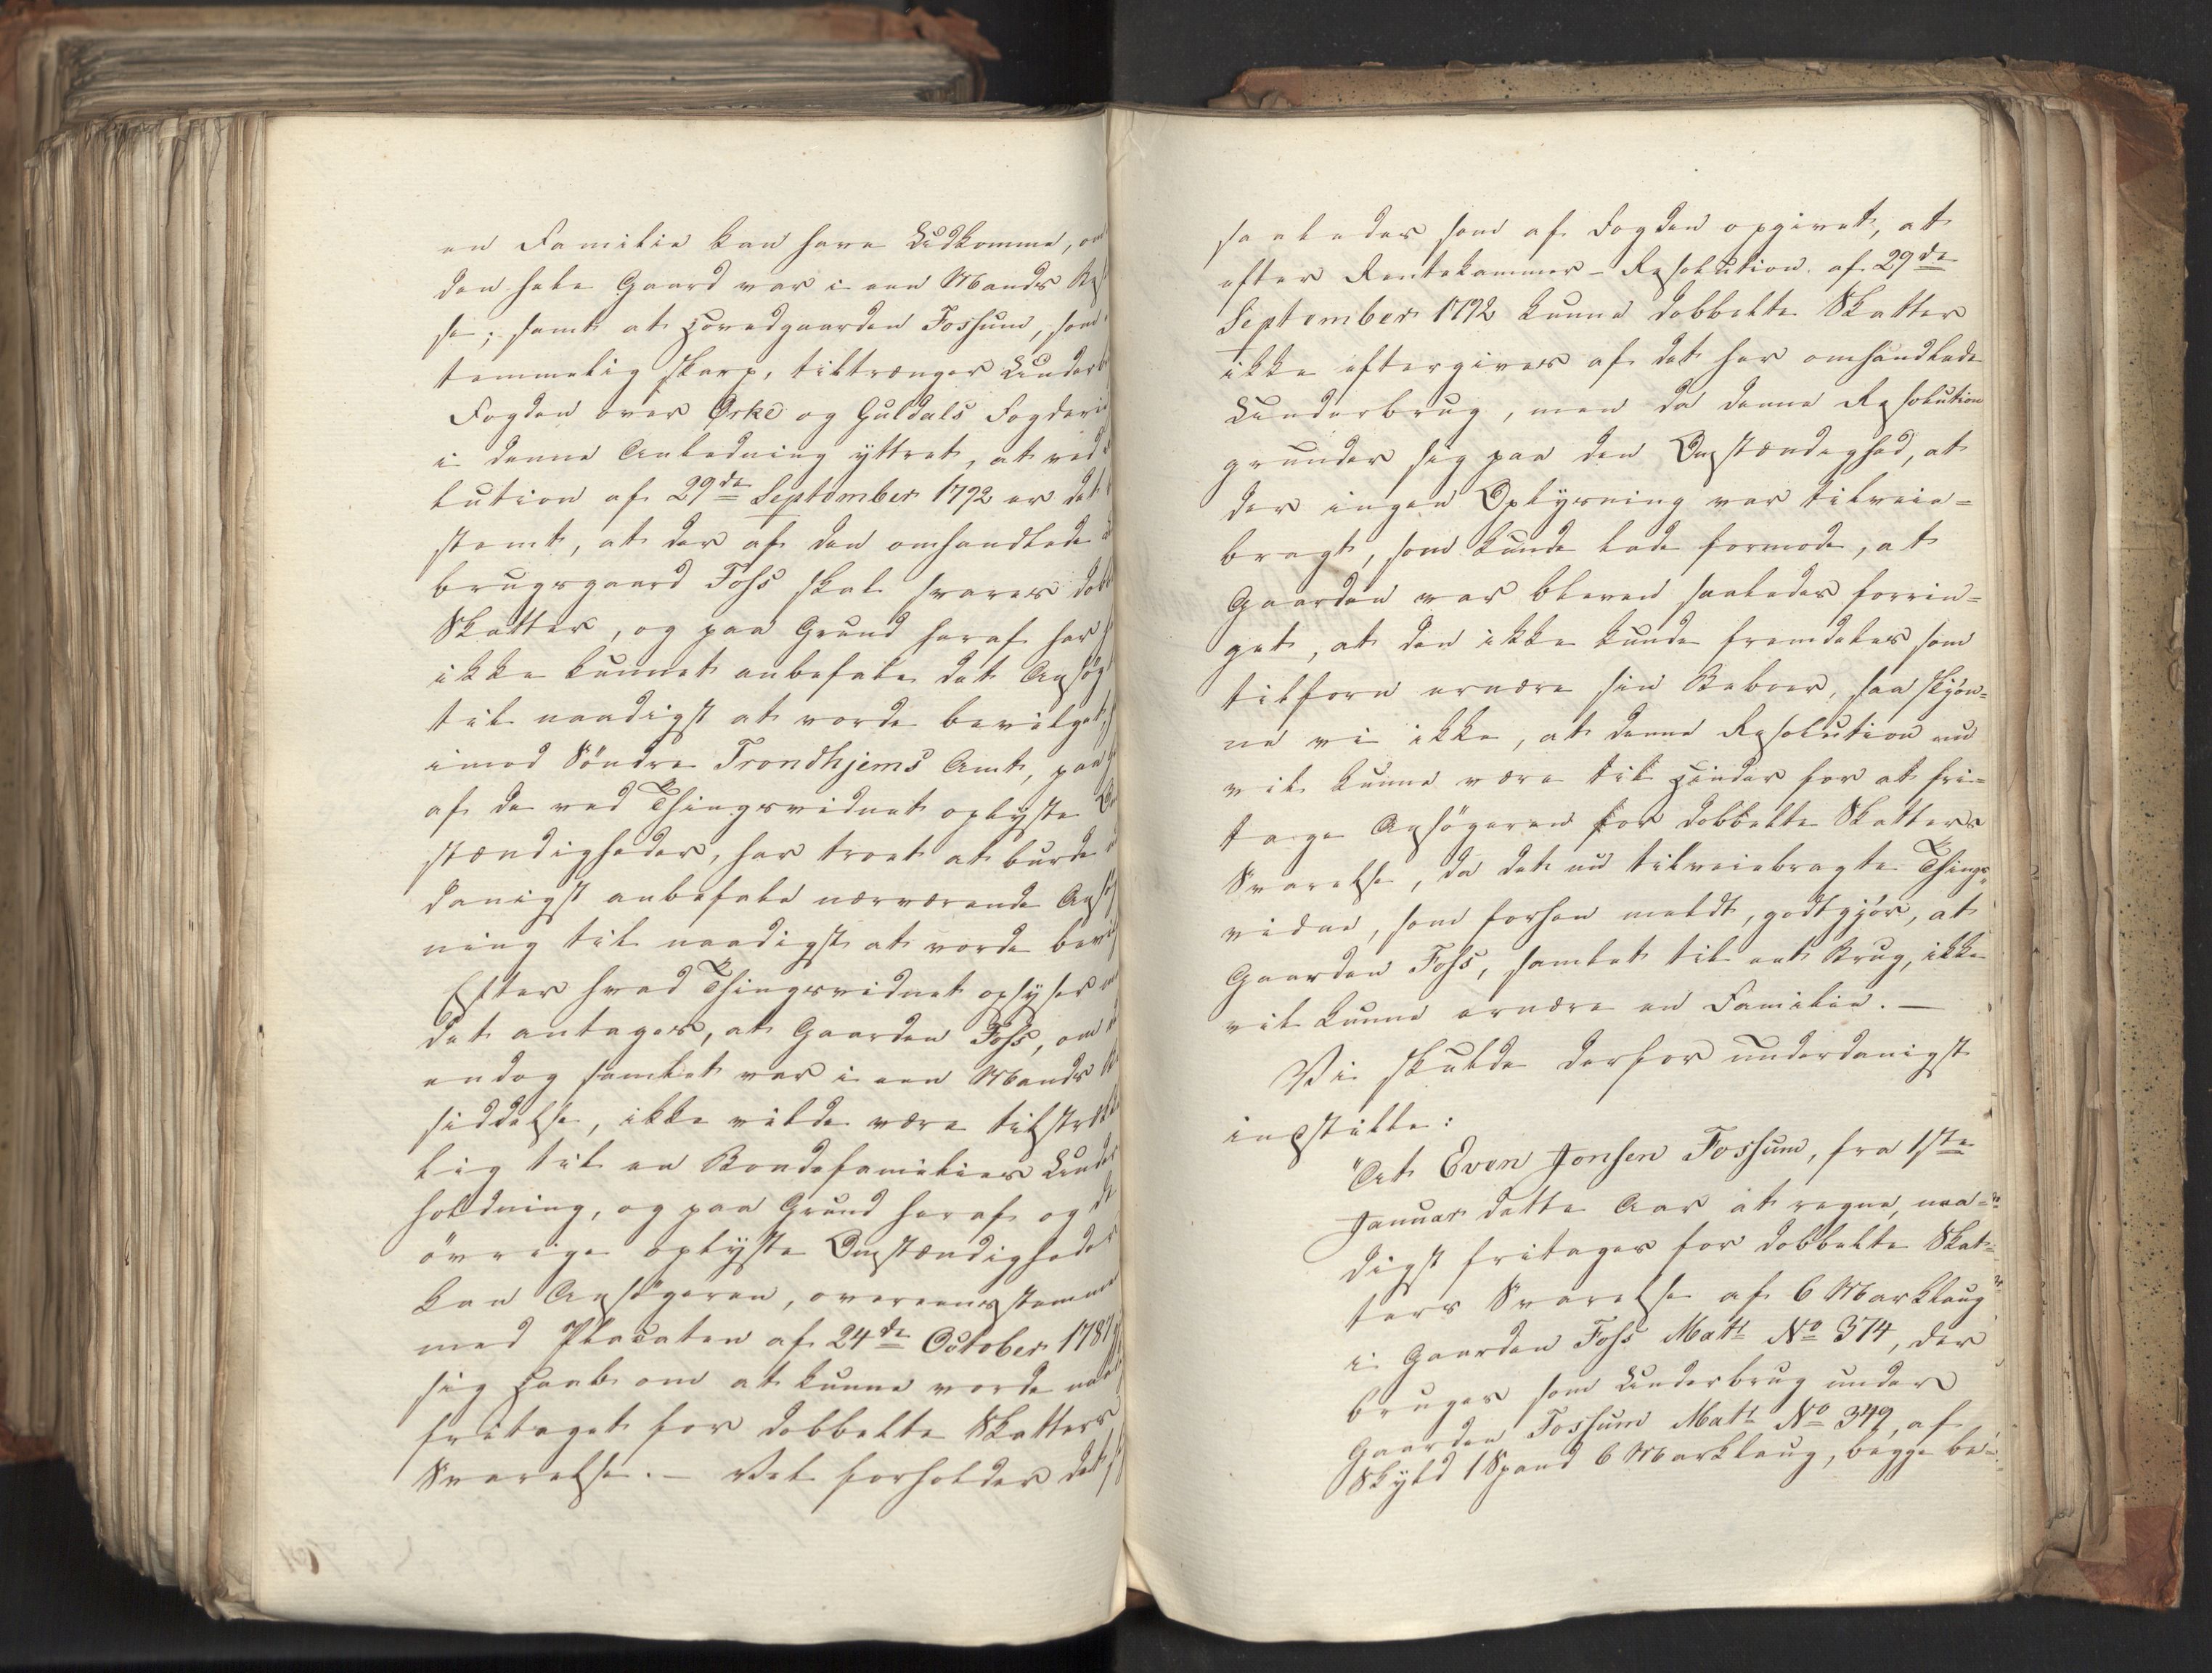 en Familie kan have Udkomme, om
den hele Gaard var i een Mands Be
se; samt at Hovedgaarden Fossum, som
temmelig skarp, tiltrænger Underb
Fogden over Orke og Guldals Fogderie
i denne Anledning yttret, at ved
lution af 29de September 1792 er det
stemt, at der af den omhandlede
brugsgaard Foss skal svares dobb
Skatter, og paa Grund heraf har
ikke kunnet anbefale det Ansög
til naadigst at vorde bevilget,
imod Söndre Trondhjems Amt, paa
af de ved Thingsvidnet oplyste Om
stændigheder, har troet at burde
danigst anbefale nærværende Ansö
ning til naadigst at vorde bevil
Efter hvad Thingsvidnet oplyser
det antages, at Gaarden Foss, om
endog samlet var i een Mands Be
siddelse, ikke vilde være tilstrække
lig til en Bondefamilies Under
holdning, og paa Grund heraf og de
övrige oplyste Omstændigheder
kan Ansögeren, overeensstemme
med Placaten af 24de October 1787
sig Haab om at kunne vorde naa
fritaget for dobbelte Skatters
Svarelse. – Vel forholder det
saaledes som af Fogden opgivet, at
efter Rentekammer-Resolution af 29de
September 1792 kunne dobbelte Skatter
ikke eftergives af det her omhandlede
Underbrug, men da denne Resolution
grunder sig paa den Omstændighed, at
der ingen Oplysning var tilveie=
bragt, som kunde lade formode, at
Gaarden var bleven saaledes forrin=
get, at den ikke kunde fremdeles som
tilforn ernære sin Beboer, saa skjön=
ne vi ikke, at denne Resolution nu
vil kunne være til Hinder for at fri=
tage Ansögeren for dobbelte Skatters
Svarelse, da det nu tilveiebragte Things=
vidne, som forhen meldt, godtgjör, at
Gaarden Foss, samlet til eet Brug, ikke
vil kunne ernære en Familie. –
Vi skulde derfor underdanigst
indstille:
"At Even Jonsen Fossum, fra 1ste
Januar dette Aar at regne, naa=
digst fritages for dobbelte Skat=
ters Svarelse af 6 Marklaug
i Gaarden Foss Matr No 374, der
bruges som Underbrug under
Gaarden Fossum Matr No 349, af
Skyld 1 Spand 6 Marklaug, begge be=